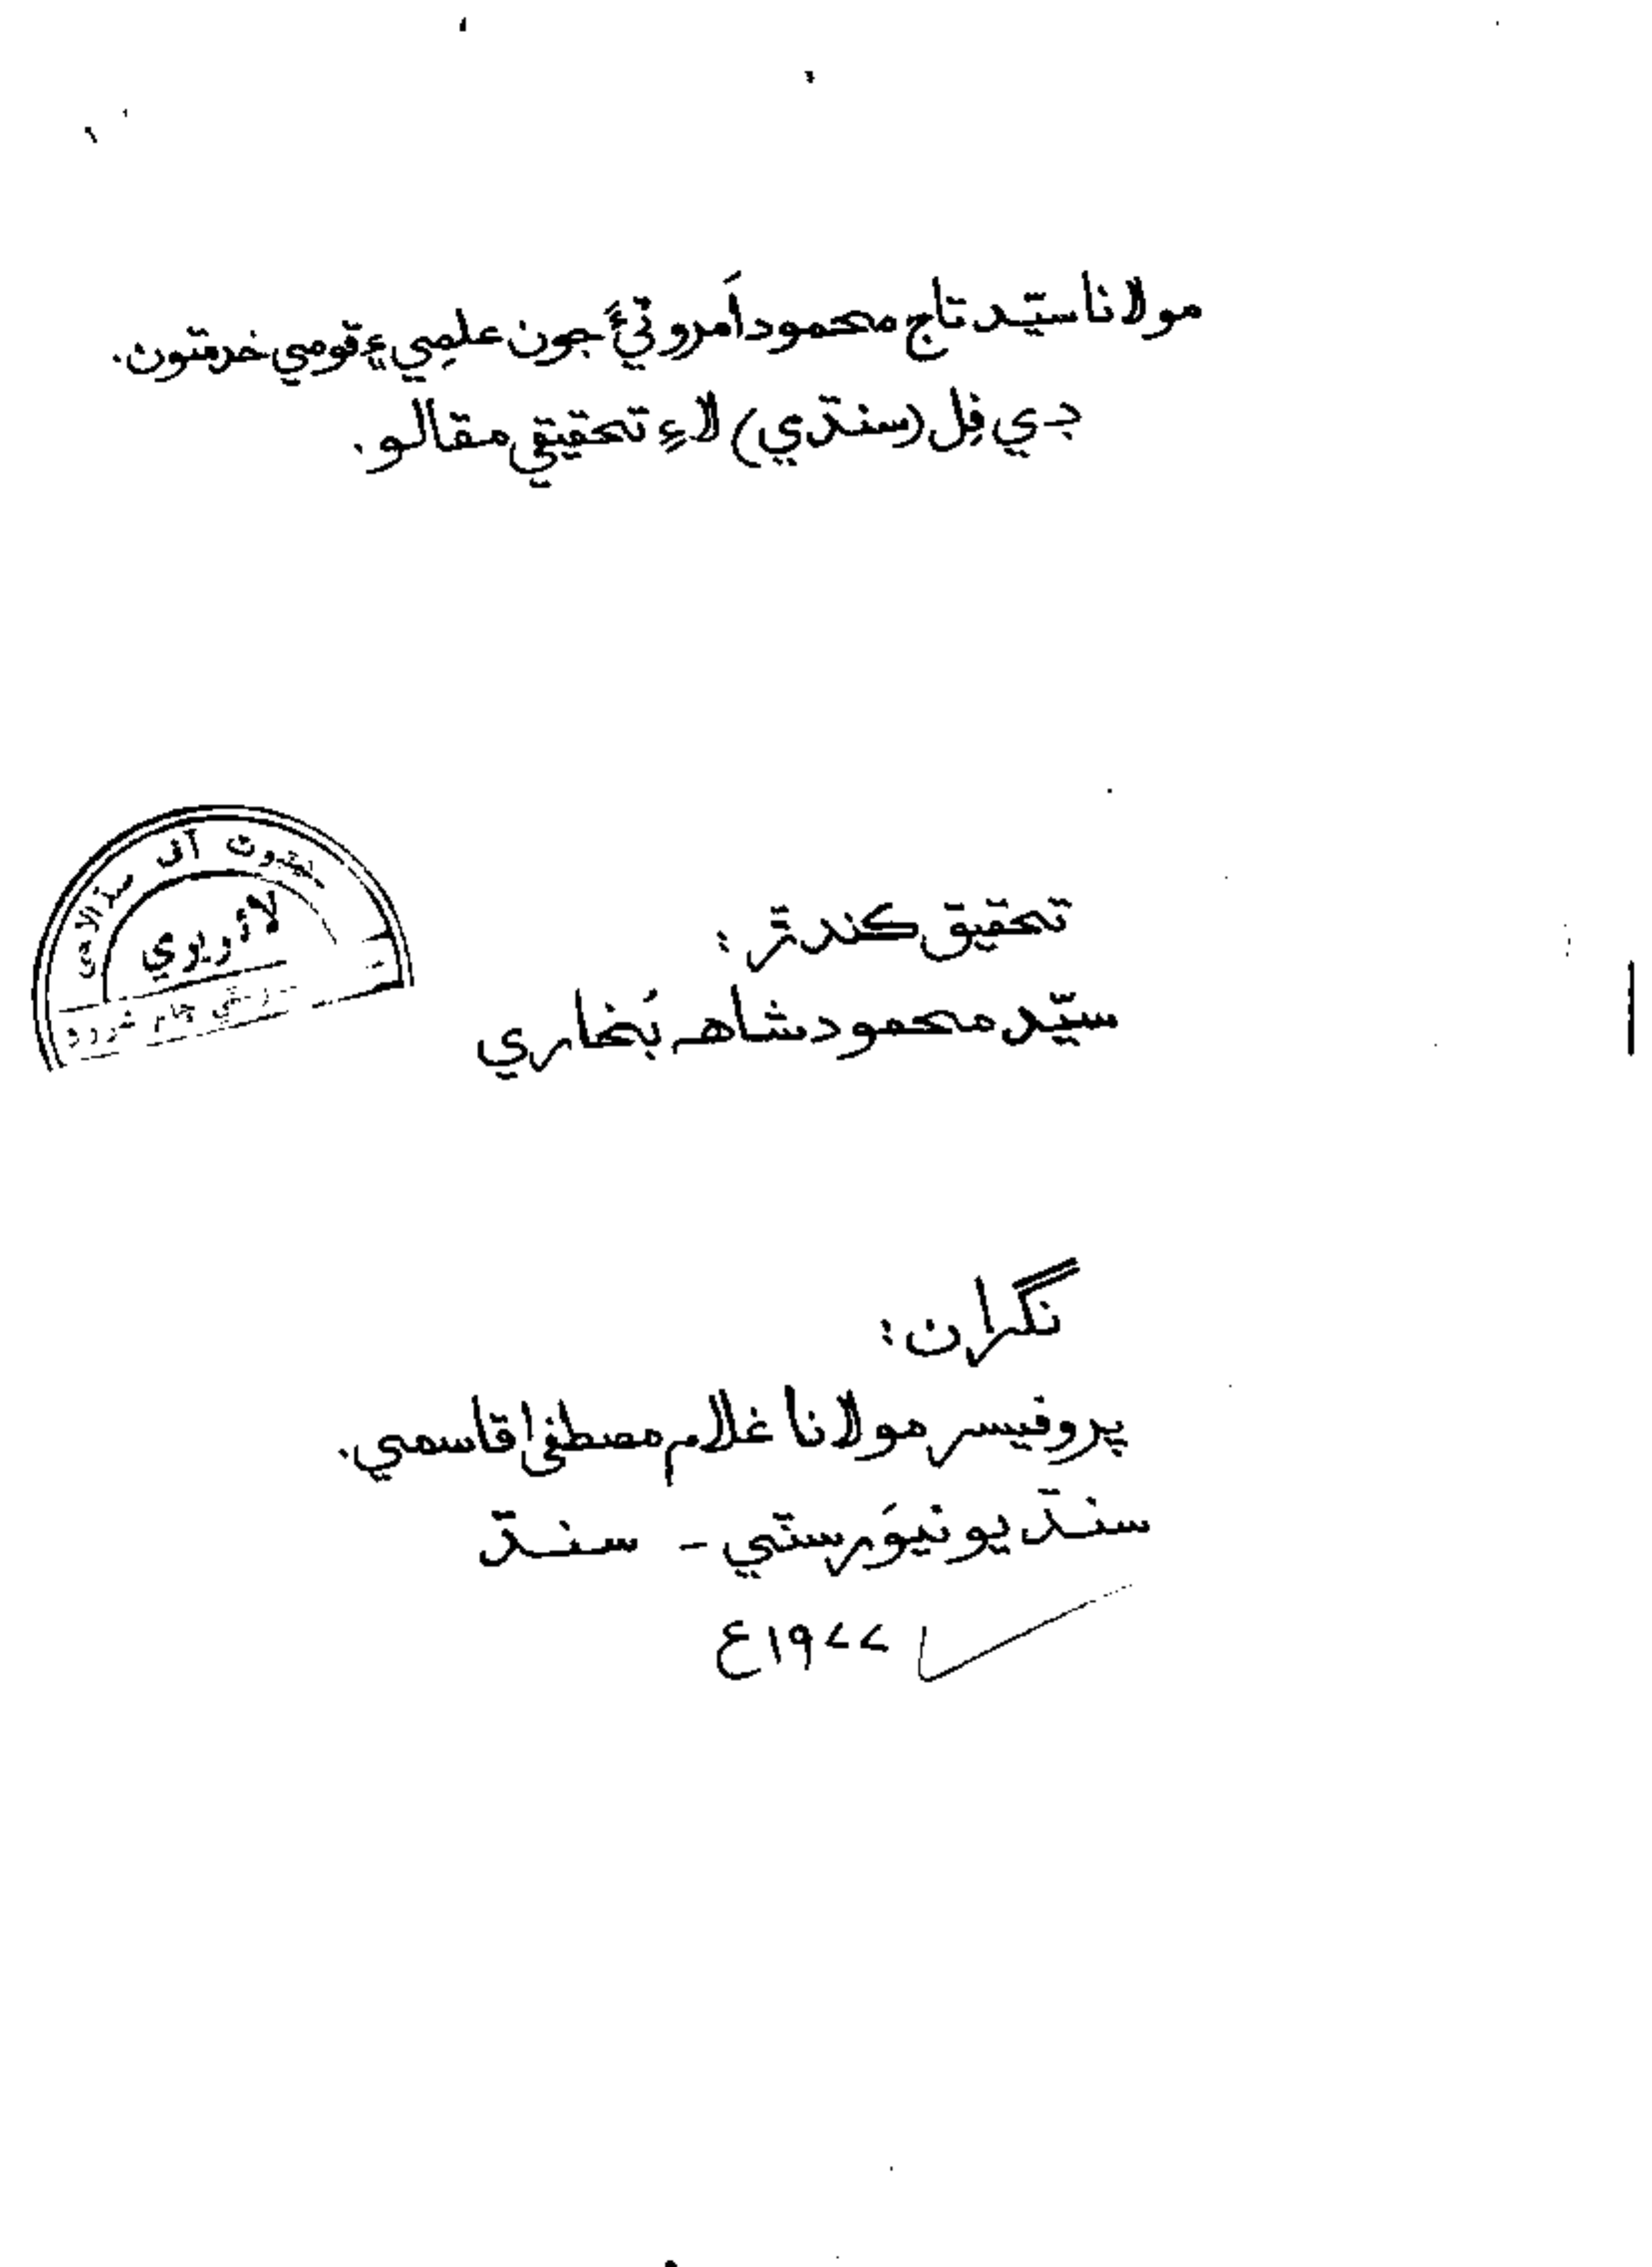 مولانا سيّد تاج محمود اَمروٽيءَ جون علمِي ۽ قومي خدمتون.
ڊي فِل (سنڌي) لاءِ تحقيقي مقالو.
لائبريري
تحقيق ڪندڙ:
سيّد محمود شاھ بُخاري
نگران:
پروفيسر مولانا غلام مصطفيٰ قاسمي.
سنڌ يونيوَرسٽي - سنڌ
۱۹۷۷ع